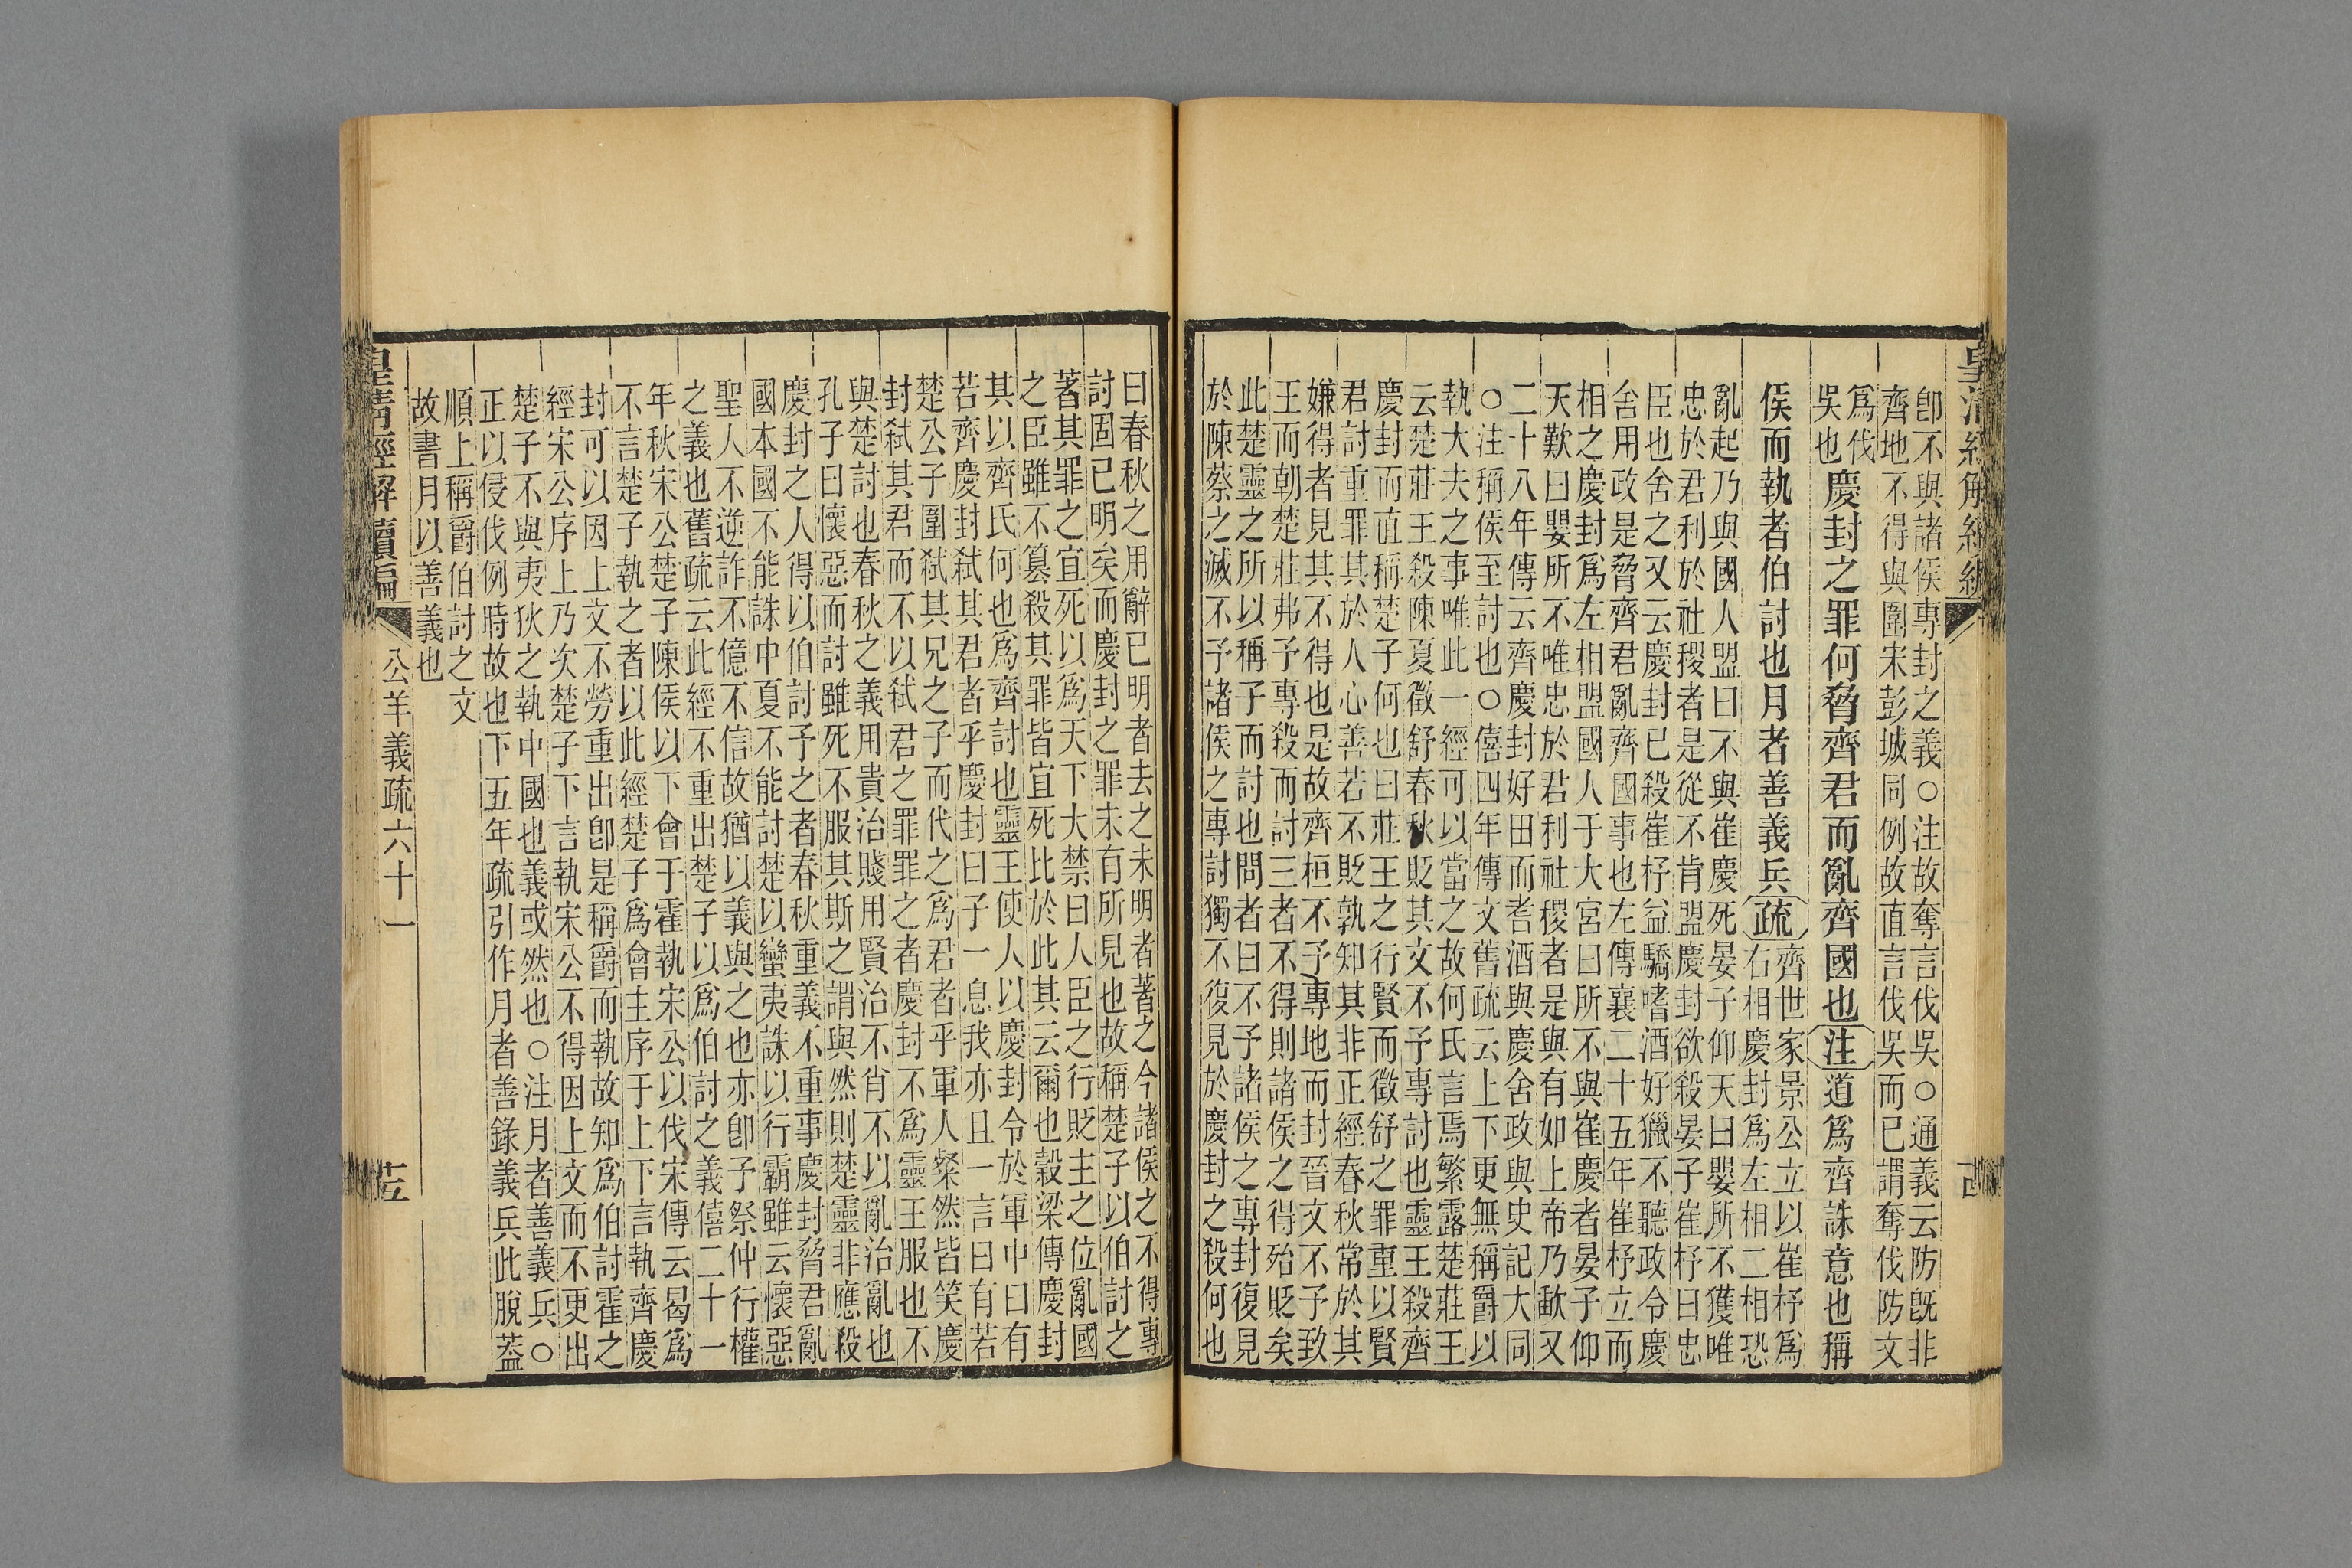 皇清經解續編
卽不與諸侯專封之義○注故奪言伐吳○通義云防旣非
齊地不得與圍宋彭城同例故直言伐吳而已謂奪伐防文
爲伐
吳也
慶封之罪何脅齊君而亂齊國也注道爲齊誅意也稱
侯而執者伯討也月者善義兵疏
齊世家景公立以崔杼爲
右相慶封爲左相二相恐
亂起乃與國人盟曰不與崔慶死晏子仰天曰嬰所不獲唯
忠於君利於社稷者是從不肯盟慶封欲殺晏子崔杼曰忠
臣也舍之又云慶封已殺崔杼益驕嗜酒好獵不聽政令慶
舍用政是脅齊君亂齊國事也左傳襄二十五年崔杼立而
相之慶封爲左相盟國人于大宮曰所不與崔慶者晏子仰
天歎曰嬰所不唯忠於君利社稷者是與有如上帝乃歃又
二十八年傳云齊慶封好田而耆酒與慶舍政與史記大同
○注稱侯至討也○僖四年傳文舊疏云上下更無稱爵以
執大夫之事唯此一經可以當之故何氏言焉繁露楚莊王
云楚莊王殺陳夏徵舒春秋貶其文不予專討也靈王殺齊
慶封而直稱楚子何也曰莊王之行賢而徵舒之罪重以賢
君討重罪其於人心善若不貶孰知其非正經春秋常於其
嫌得者見其不得也是故齊桓不予專地而封晉文不予致
王而朝楚莊弗予專殺而討三者不得則諸侯之得殆貶矣
此楚靈之所以稱子而討也問者曰不予諸侯之專封復見
於陳蔡之滅不予諸侯之專討獨不復見於慶封之殺何也
曰春秋之用辭已明者去之未明者著之今諸侯之不得專
討固已明矣而慶封之罪未有所見也故稱楚子以伯討之
著其罪之宜死以爲天下大禁曰人臣之行貶主之位亂國
之臣雖不篡殺其罪皆宜死比於此其云爾也穀梁傳慶封
其以齊氏何也爲齊討也靈王使人以慶封令於軍中曰有
若齊慶封弒其君者乎慶封曰子一息我亦且一言曰有若
楚公子圍弒其兄之子而代之爲君者乎軍人粲然皆笑慶
封弒其君而不以弒君之罪罪之者慶封不爲靈王服也不
與楚討也春秋之義用貴治賤用賢治不肖不以亂治亂也
孔子曰懷惡而討雖死不服其斯之謂與然則楚靈非應殺
慶封之人得以伯討予之者春秋重義不重事慶封脅君亂
國本國不能誅中夏不能討楚以蠻夷誅以行霸雖云懷惡
聖人不逆詐不億不信故猶以義與之也亦卽子祭仲行權
之義也舊疏云此經不重出楚子以爲伯討之義僖二十一
年秋宋公楚子陳侯以下會于霍執宋公以伐宋傳云曷爲
不言楚子執之者以此經楚子爲會主序于上下言執齊慶
封可以因上文不勞重出卽是稱爵而執故知爲伯討霍之
經宋公序上乃次楚子下言執宋公不得因上文而不更出
楚子不與夷狄之執中國也義或然也○注月者善義兵○
正以侵伐例時故也下五年疏引作月者善錄義兵此脫蓋
順上稱爵伯討之文
故書月以善義也
皇淸經解續編
公羊義疏六十一